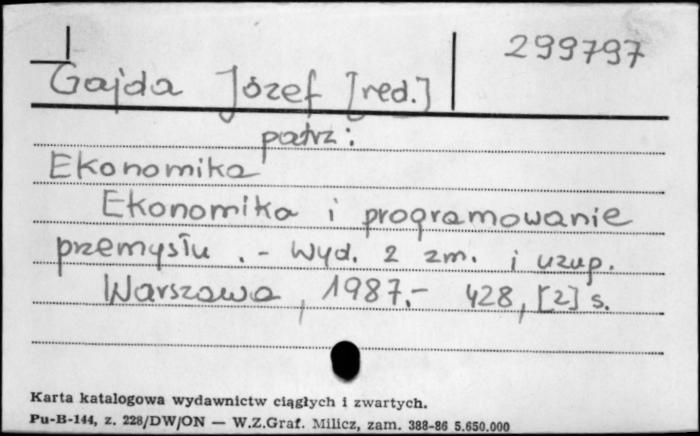 299797
Gajda Józef [red.]
patrz:
Ekonomika
Ekonomika i programowanie
przemysłu . - Wyd. 2 zm. i uzup.
Warszawa, 1987.- 428, [2] s.
Karta katalogowa wydawnictw ciągłych i zwartych.
Pu-B-144, z. 228/DW/ON — W.Z.Graf. Milicz, zam. 388-86 5.650.000